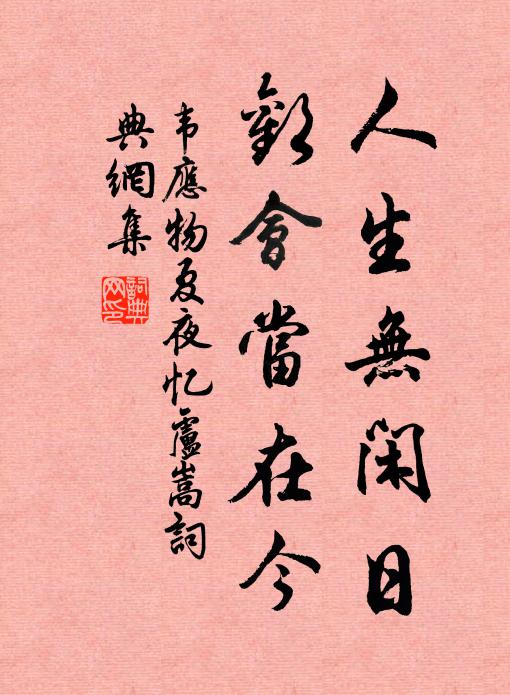 人生無閑日
歡會當在今
韦應物夏夜忆盧嵩詞
典網集
詞典
网印